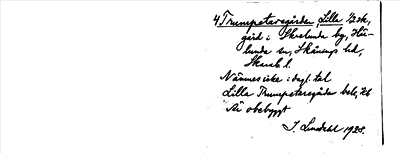 4 Trumpetaregården, Lilla 1/2 sk,
gård i Skalunda by, Hä-
lunda sn, Skånings hd,
Skarab. l.
Nämnes icke i dagl. tal
Lilla Trumpetaregården bets, 26
Är obebyggt
J. Lindahl 1928.